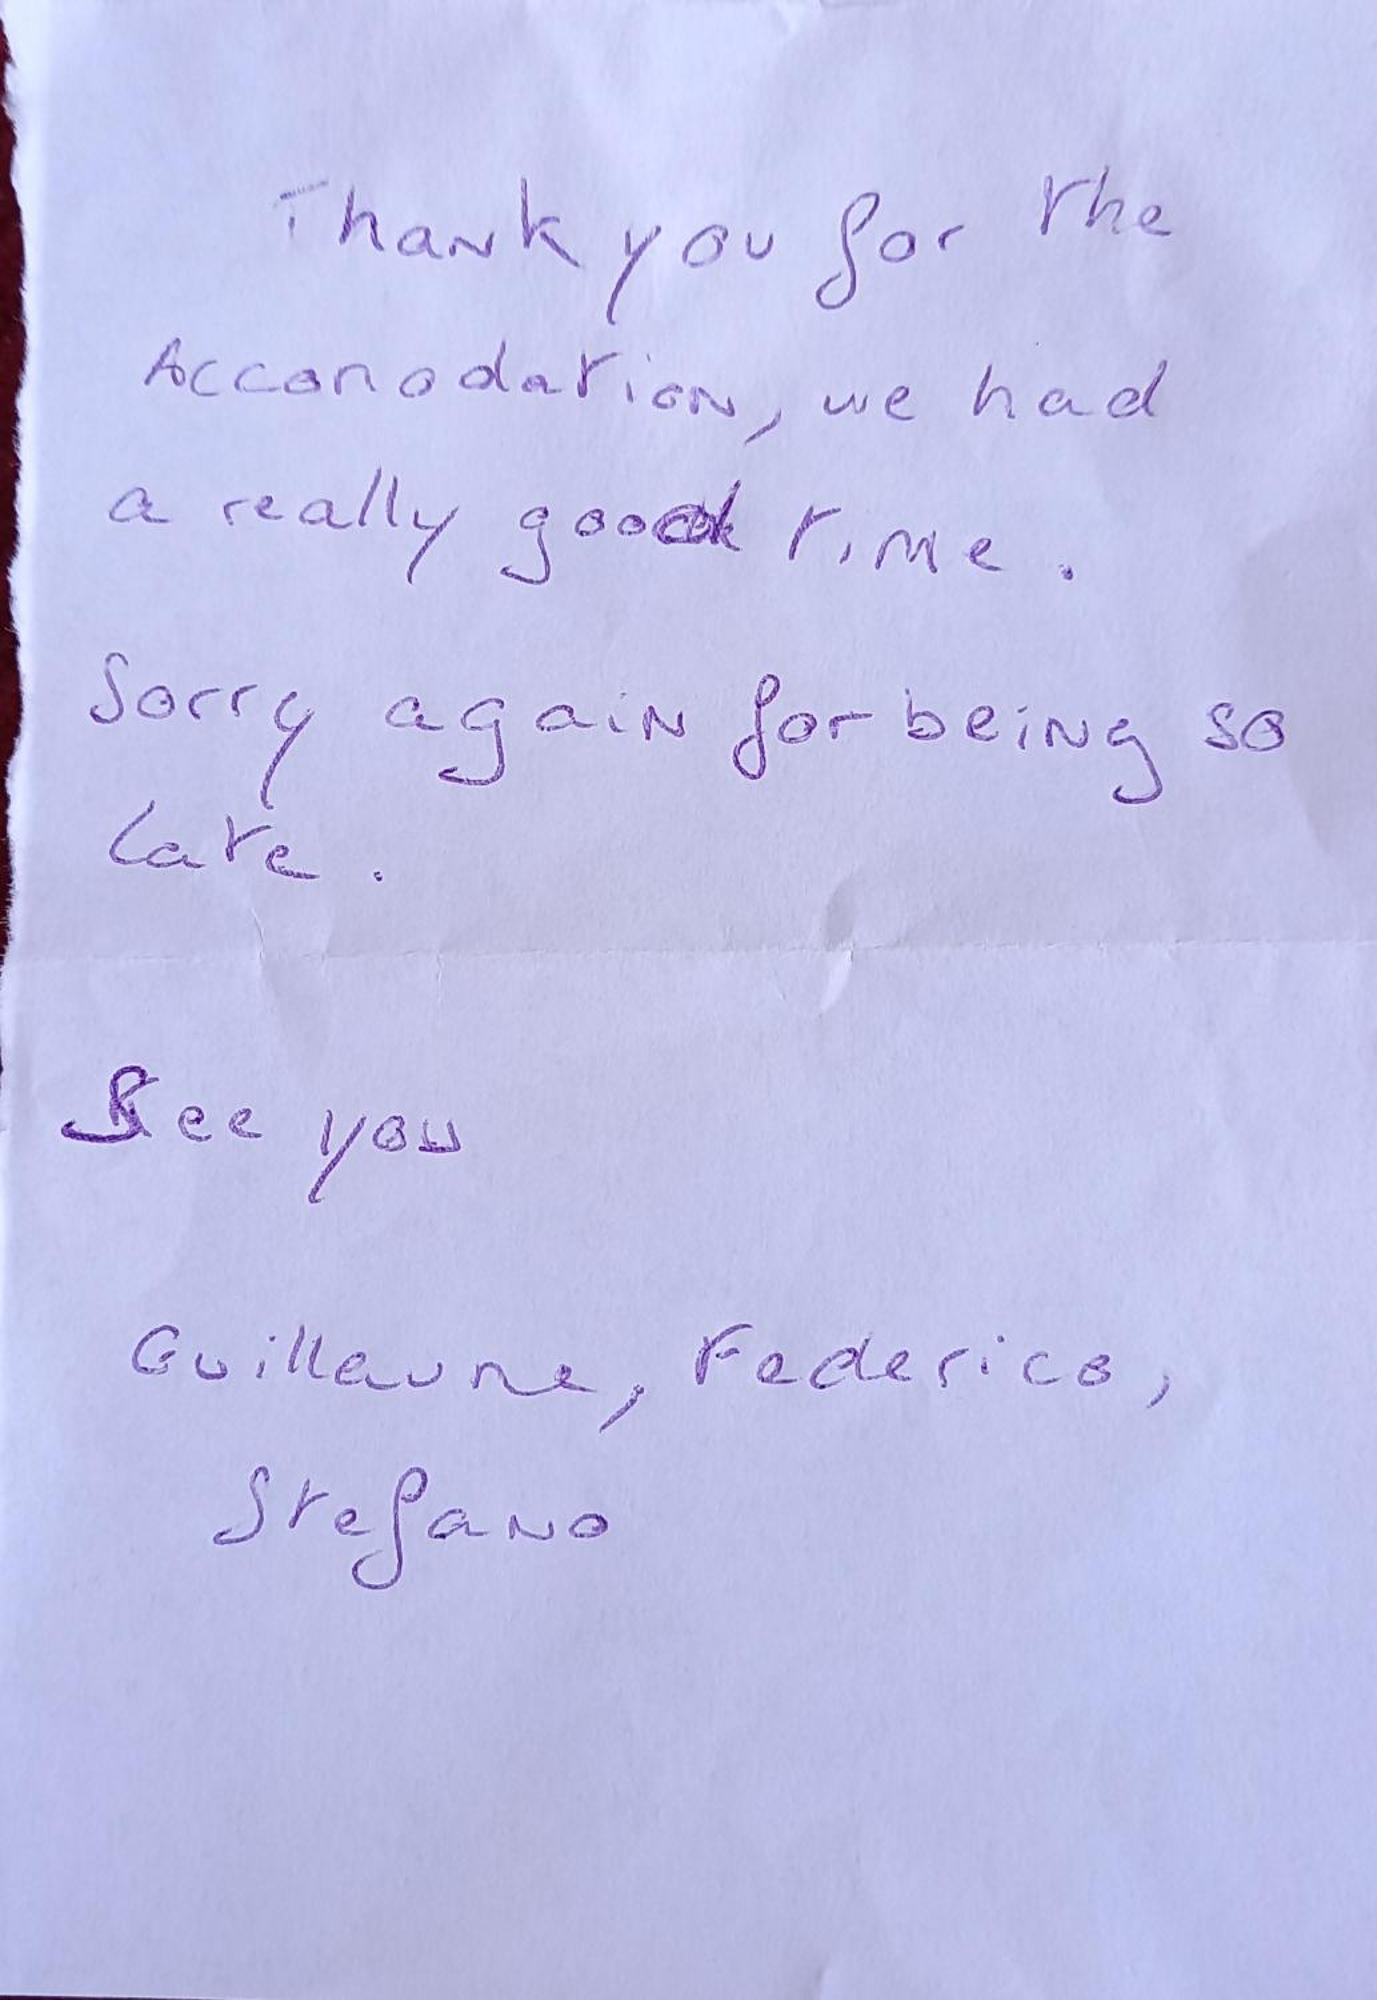 Thank you for the
Accomodation, we had
a really good time.
Sorry again for being so
late.
See you
Guillaume, Federico,
Stefano